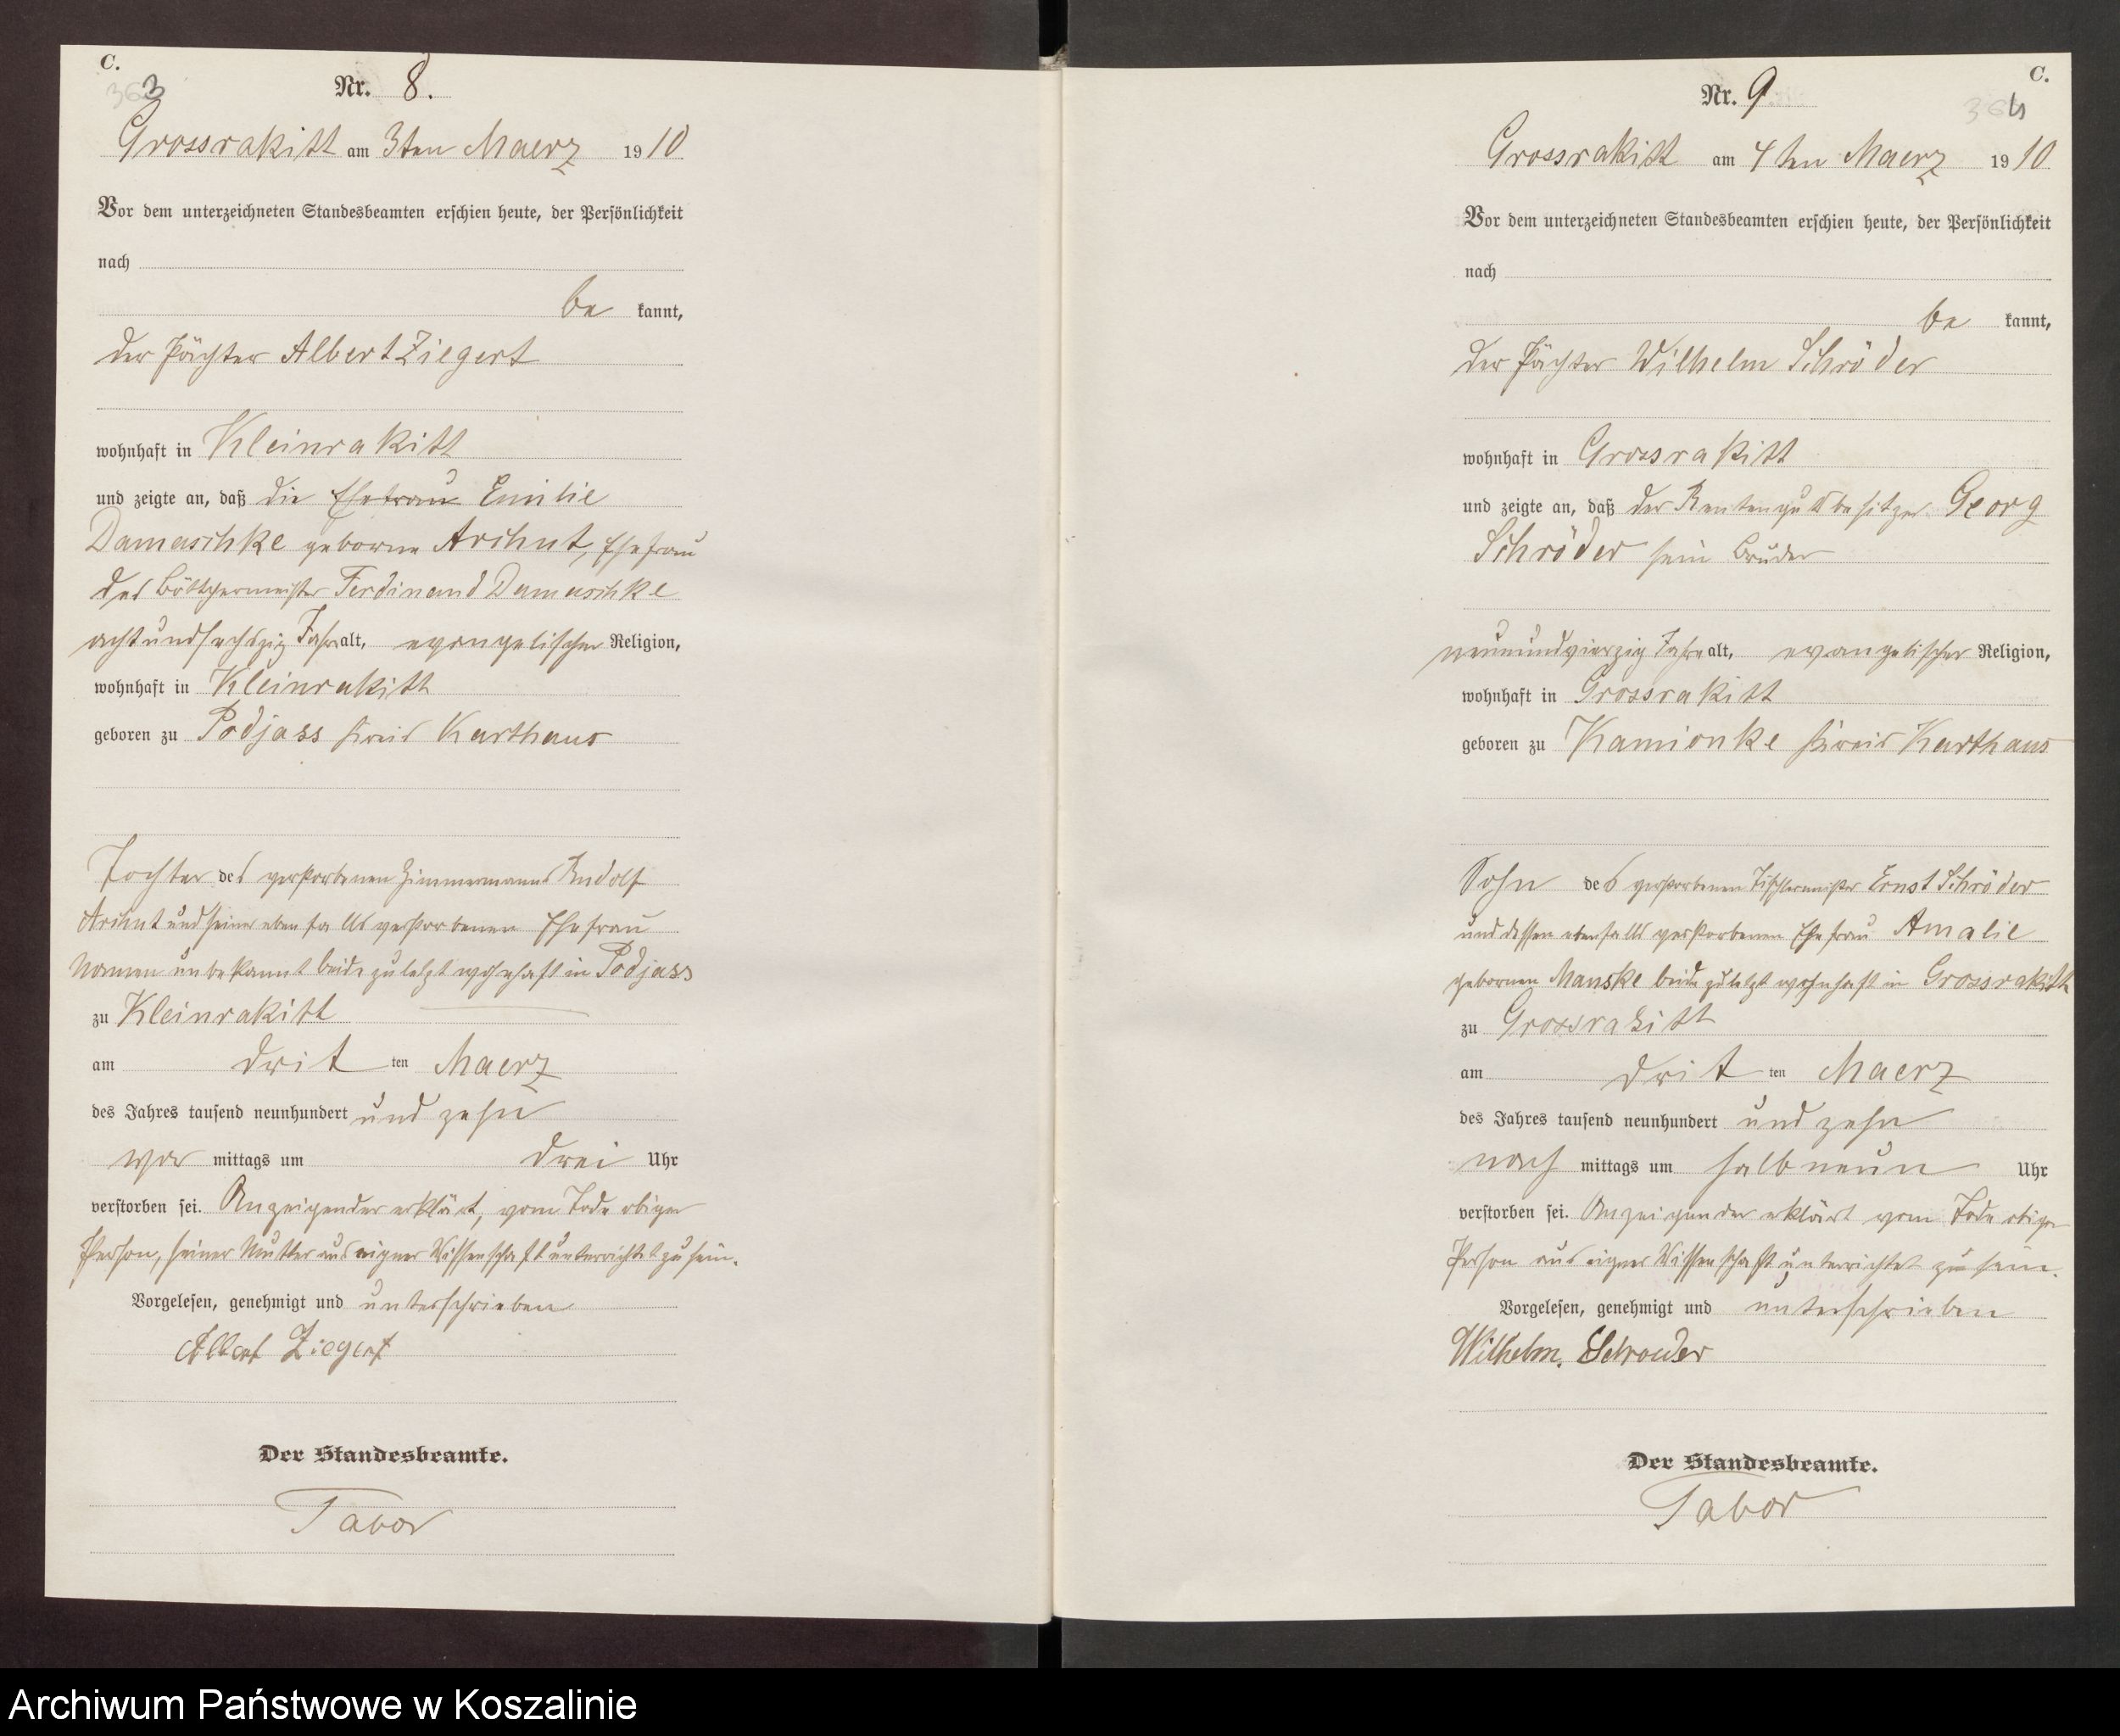 C.
363
Nr. 8.
Grossrakitt am 3ten Maerz 1910
Vor dem unterzeichneten Standesbeamten erschien heute, der Persönlichkeit
nach
be kannt,
der Pächter Albert Ziegert
wohnhaft in Kleinrakitt
und zeigte an, daß die Ehefrau Emilie
Damaschke geborne Arihut, Ehefrau
des Böttchermeister Ferdinand Damaschke
achtundsechszig Jahre alt, evangelischer Religion,
wohnhaft in Kleinrakitt
geboren zu Podjass Kreis Karthaus
Tochter des verstorbenen Zimmermanns Rudolf
Arihut und seiner ebenfalls verstorbenen Ehefrau
Namen unbekannt beide zuletzt wohnhaft in Podjass
zu Kleinrakitt
am drit ten Maerz
des Jahres tausend neunhundert und zehn
vor mittags um drei Uhr
verstorben sei. Anzeigender erklärt, vom Tode obiger
Person, seiner Mutter aus eigner Wissenschaft unterrichtet zu sein.
Vorgelesen, genehmigt und unterschrieben
Albert Ziegert
Der Standesbeamte.
Tabor
C.
364
Nr. 9
Grossrakitt am 4ten Maerz 1910
Vor dem unterzeichneten Standesbeamten erschien heute, der Persönlichkeit
nach
be kannt,
der Pächter Wilhelm Schröder
wohnhaft in Grossrakitt
und zeigte an, daß der Rentengutsbesitzer Georg
Schröder sein Bruder
neunundvierzig Jahre alt, evangelischer Religion,
wohnhaft in Grossrakitt
geboren zu Kamionke Kreis Karthaus
Sohn des verstorbenen Tischlermeister Ernst Schröder
und dessen ebenfalls verstorbenen Ehefrau Amalie
gebornen Manske beide zuletzt wohnhaft in Grossrakitt
zu Grossrakitt
am drit ten Maerz
des Jahres tausend neunhundert und zehn
nach mittags um halb neun Uhr
verstorben sei. Anzeigender erklärt vom Tode obiger
Person aus eigner Wissenschaft unterrichtet zu sein.
Vorgelesen, genehmigt und unterschrieben
Wilhelm. Schroeder
Der Standesbeamte.
Tabor
Archiwum Państwowe w Koszalinie